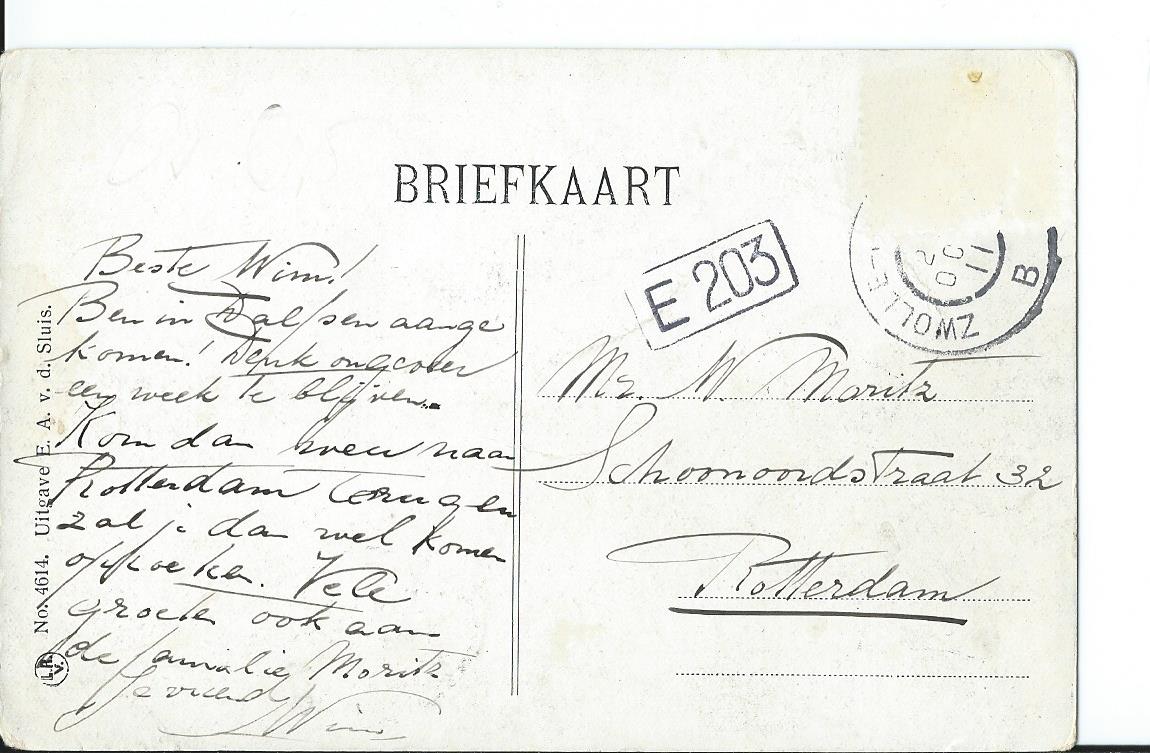 BRIEFKAART
Beste Wim!
Ben in Dalfsen aange
komen! Denk ongeveer
een week te blijven.
Kom dan weer naar
Rotterdam terug en
zal je dan wel komen
opzoeken. Vele
groeten ook aan
de familie Moritz
Je vriend
Wim
No. 4614. Uitgave E. A. v. d. Sluis.
L.R.
V.
E 203
ZWOLLE
2
OC
11
B
Mr. W. Moritz
Schoonoordstraat 32
Rotterdam